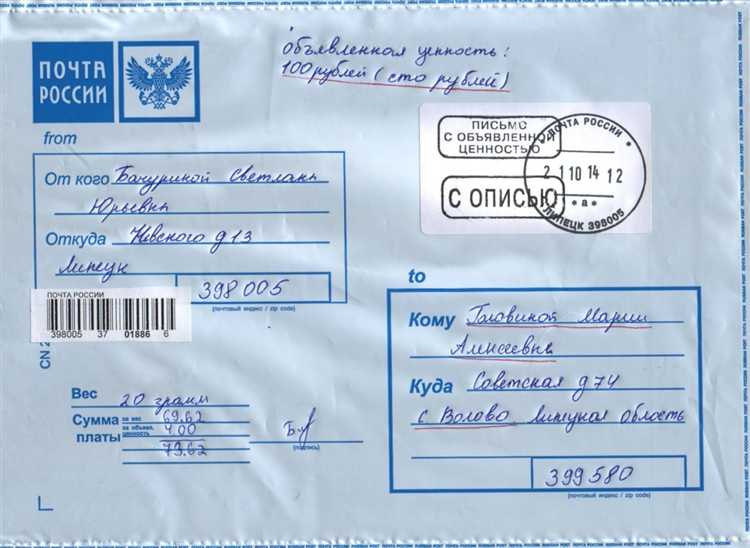 Объявленная ценность:
100 рублей (сто рублей)
ПОЧТА
РОССИИ
ПИСЬМО
С ОБЪЯВЛЕННОЙ
ЦЕННОСТЬЮ
С ОПИСЬЮ
ПОЧТА РОССИИ
2 1 10 14 12
а
ЛИПЕЦК 398005
from
От кого Бачуриной Светланы
Юрьевны
Откуда Невского д 13
Липецк
398005
(почтовый индекс / zip code)
ПОЧТА РОССИИ
398005 37 01886 6
CN 2
to
Кому Головиной Марии
Алексеевне
Куда Советская д 74
с Волово Липецкая область
399580
(почтовый индекс / zip code)
Вес 20 грамм
Сумма за вес 69.62
платы за объявл. ценность 4.00
73.62
(подпись)